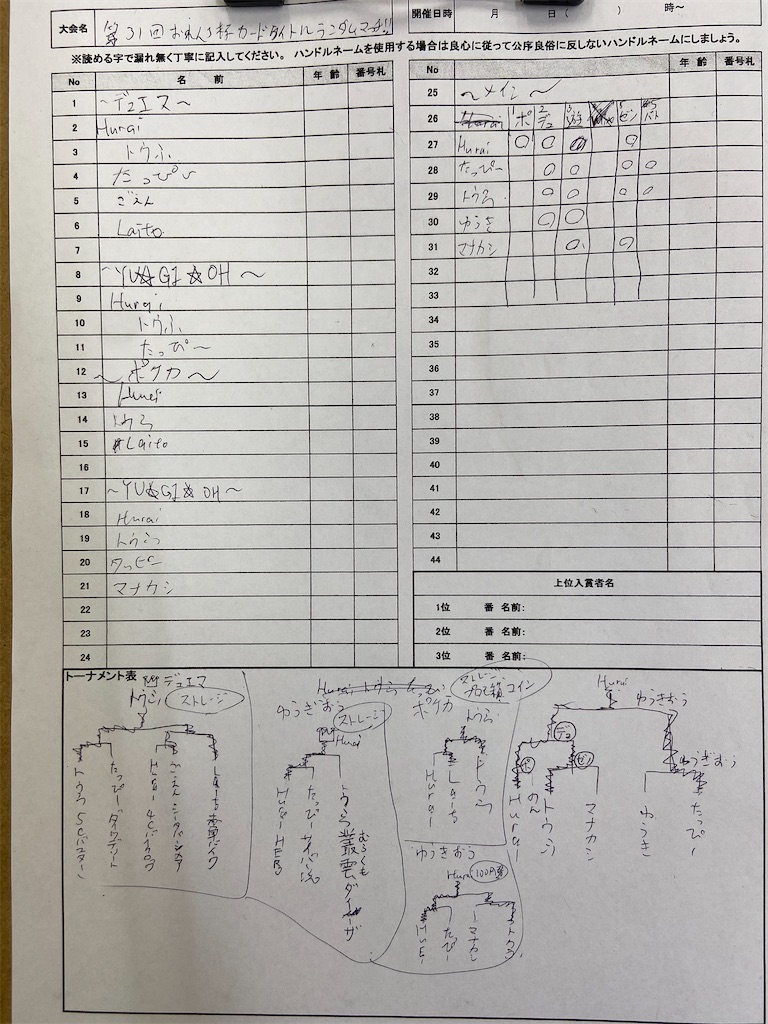 大会名 第31回おれんじ杯カードタイトルランダムマッチ!!
開催日時 月 日( ) 時～
※読める字で漏れ無く丁寧に記入してください。 ハンドルネームを使用する場合は良心に従って公序良俗に反しないハンドルネームにしましょう。
No 名 前 年 齢 番号札
1 ～デュエマ～
2 Hurai
3 トウふ
4 たっぴ～
5 ごえん
6 Laito
7
8 ～YU☆GI☆OH～
9 Hurai
10 トウふ
11 たっぴ～
12 ～ポケカ～
13 Hurai
14 トウふ
15 Laito
16
17 ～YU☆GI☆OH～
18 Hurai
19 トウふ
20 タッピー
21 マナカシ
22
23
24
No 年 齢 番号札
25 ～メイン～
26 ポ デュ 遊 ゼン バト
27 Hurai ○ ○ ○ ○
28 たっぴ～ ○ ○ ○ ○
29 トウふ ○ ○ ○ ○
30 ゆうき ○ ○
31 マナカシ ○ ○
32
33
34
35
36
37
38
39
40
41
42
43
44
上位入賞者名
1位 番 名前:
2位 番 名前:
3位 番 名前:
トーナメント表 デュエマ
トウふ ストレージ
トウふ 5Cバスター
たっぴー
Hurai 4C
ごえん
Laito
ゆうぎおう ストレージ
Hurai
Hurai HERO
たっぴーサイバー流
トウふ 叢雲ダイーザ
むらくも
ストレージ
ポケカ コイン
トウふ
Hurai
Laito
トウふ
ゆうぎおう
Hurai 100円
Hurai
たっぴー
マナカシ
トウふ
Hurai
ゆうぎおう
デュ
ポ
ゼン
ゆうぎおう
Hurai
トウふ
マナカシ
ゆうき
たっぴ～